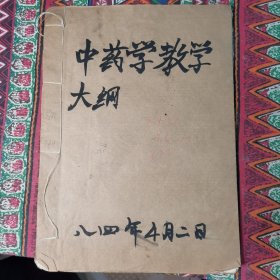 中药学教学
大纲
八四年4月二日